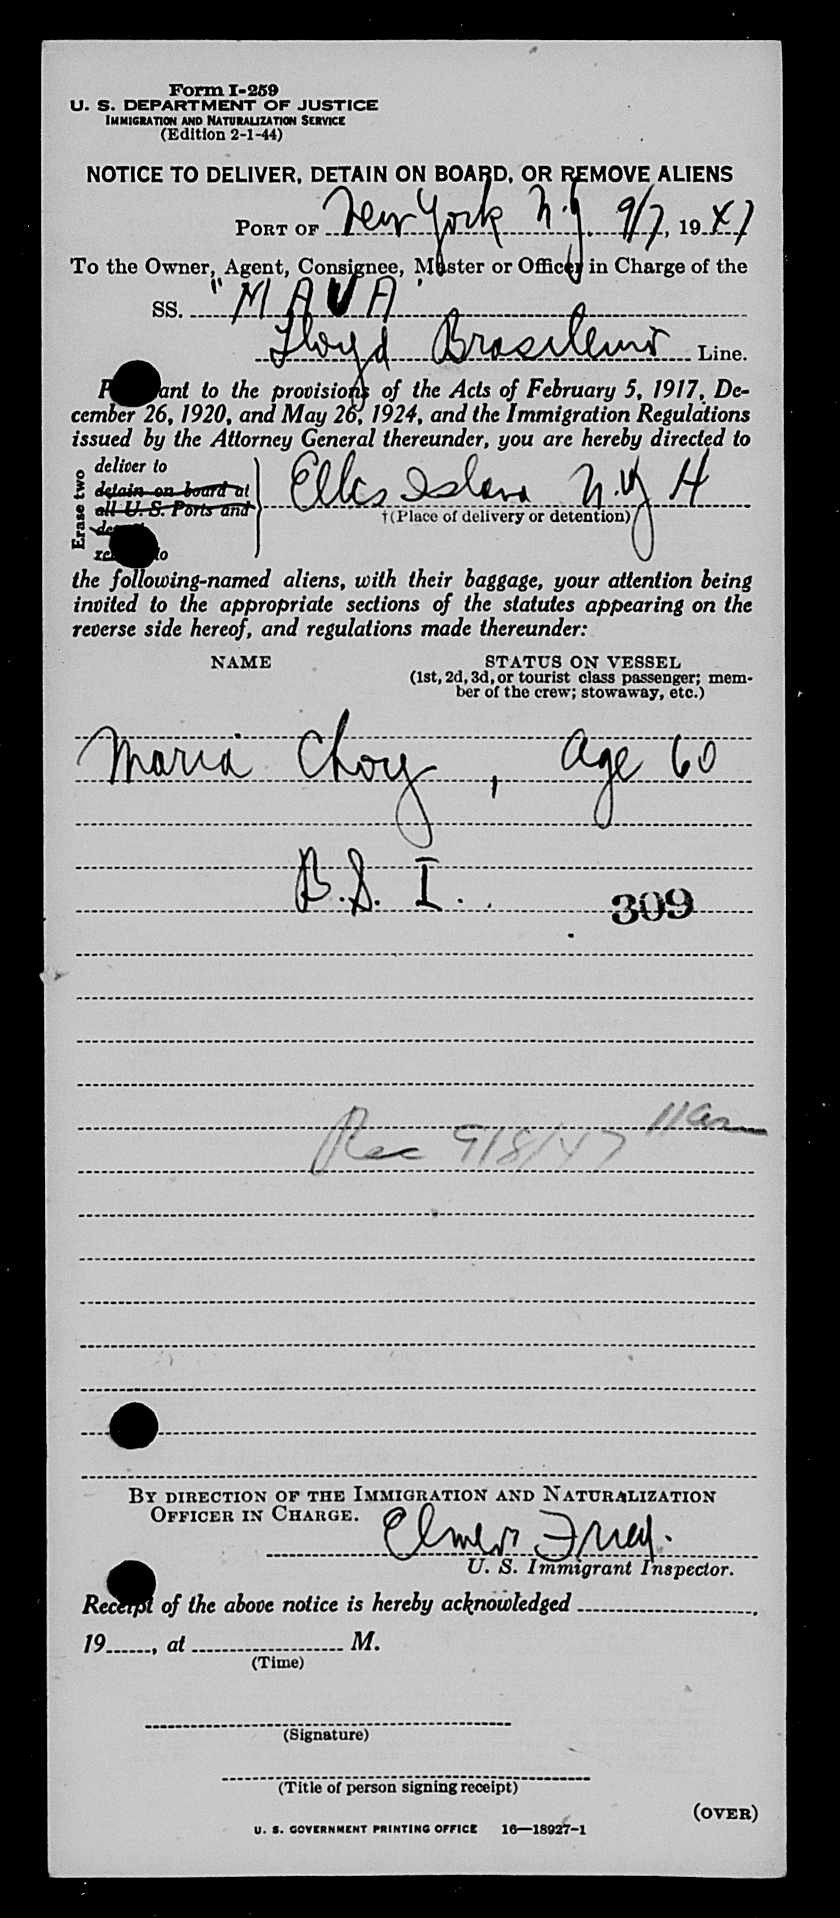 Form I-259
U. S. DEPARTMENT OF JUSTICE
IMMIGRATION AND NATURALIZATION SERVICE
(Edition 2-1-44)
NOTICE TO DELIVER, DETAIN ON BOARD, OR REMOVE ALIENS
PORT OF New York N.Y. 9/7, 1947
To the Owner, Agent, Consignee, Master or Officer in Charge of the
SS. "MAUA"
Lloyd Brasileiro Line.
P ant to the provisions of the Acts of February 5, 1917, De-
cember 26, 1920, and May 26, 1924, and the Immigration Regulations
issued by the Attorney General thereunder, you are hereby directed to
Erase two
deliver to
detain on board at
all U. S. Ports and
de
re to
Ellis Island N.Y H
†(Place of delivery or detention)
the following-named aliens, with their baggage, your attention being
invited to the appropriate sections of the statutes appearing on the
reverse side hereof, and regulations made thereunder:
NAME STATUS ON VESSEL
(1st, 2d, 3d, or tourist class passenger; mem-
ber of the crew; stowaway, etc.)
Maria Choy, Age 60
B.S.I. 309
Rec 9/8/47 11am
BY DIRECTION OF THE IMMIGRATION AND NATURALIZATION
OFFICER IN CHARGE.
Elmer
U. S. Immigrant Inspector.
Receipt of the above notice is hereby acknowledged
19, at M.
(Time)
(Signature)
(Title of person signing receipt)
(OVER)
U. S. GOVERNMENT PRINTING OFFICE 16—18927-1